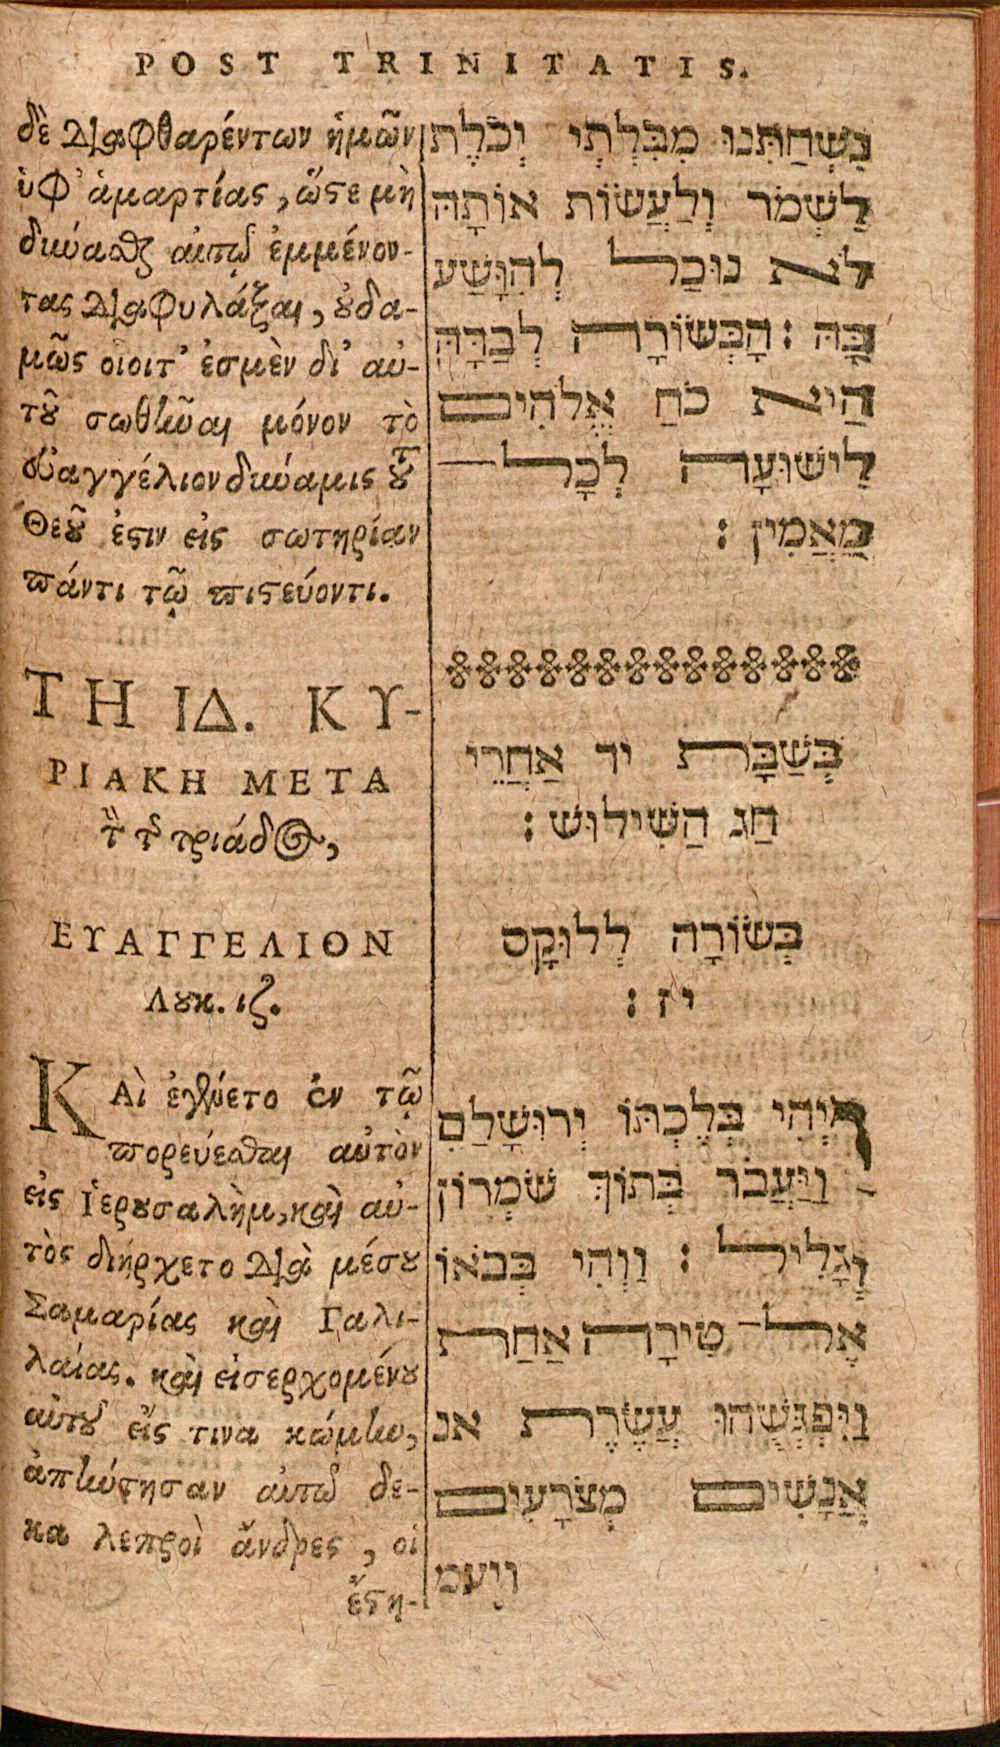 POST TRINITATIS.
δὲ διαφθαρέντων ἡμῶν
ὑφ' ἁμαρτίας, ὥστε μὴ
δύνασθαι αὐτῷ ἐμμένον-
τας διαφυλάξαι, οὐδα-
μῶς οἷοιτ' ἐσμὲν δι' αὐ-
τοῦ σωθῆναι μόνον τὸ
εὐαγγέλιον δύναμις τοῦ
Θεοῦ ἐστιν εἰς σωτηρίαν
πάντι τῷ πιστεύοντι.
ΤΗ ΙΔ. ΚΥ-
ΡΙΑΚΗ ΜΕΤΑ
τὴν τῆς τριάδος,
ΕΥΑΓΓΕΛΙΟΝ
Λουκ. ιζ.
ΚΑὶ ἐγένετο ἐν τῷ
πορεύεσθαι αὐτὸν
εἰς Ἱερουσαλὴμ, καὶ αὐ-
τὸς διήρχετο διὰ μέσου
Σαμαρίας καὶ Γαλι-
λαίας. καὶ εἰσερχομένου
αὐτοῦ εἴς τινα κώμην,
ἀπήντησαν αὐτῷ δε-
κα λεπροὶ ἄνδρες, οἱ
ἔστη-
נִשְׁחַתְּנוּ מִבִּלְתְּי יְכֹלֶת
לִשְׁמֹר וְלַעֲשׂוֹת אוֹתָהּ
לֹא נוּכַל לְהִוָּשַׁע
בָּהּ : הַבְּשׂוֹרָה לְבַדָּהּ
הִיא כֹּחַ אֱלֹהִים
לִישׁוּעָה לְכָל־
מַאֲמִין :
בְּשַׁבָּת יד אַחֲרֵי
חַג הַשִּׁילוּשׁ :
בְּשׂוֹרָה לְלוּקָס
יז :
וַיְהִי בְּלֶכְתּוֹ יְרוּשָׁלַםִ
וַיַּעֲבֹר בְּתוֹךְ שֹׁמְרוֹן
וְגָלִיל : וַיְהִי בְּבֹאוֹ
אֶל־ טִירָה אַחַת
וַיִּפְגְּשֻׁהוּ עֲשֶׂרֶת אנ
אֲנָשִׁים מְצֹרָעִים
ויעמ